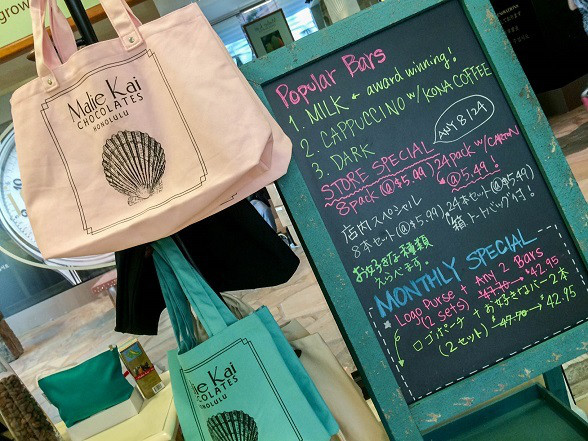 grow
Malie Kai
CHOCOLATES
HONOLULU
lie Kai
COLATES
NOLULU
Popular Bars
1. MILK ← award winning!
2. CAPPUCCINO w/ KONA COFFEE
3. DARK
STORE SPECIAL
ANY 8/24
8 Pack @ $5.99) 24 pack w/ CARTON
@ 5.49!
店内スペシャル
8本セット(@$5.99) 24本セット(@$5.49)
お好きな種類
えらべます。
箱、トートバッグ付き!
MONTHLY SPECIAL
Logo Purse + Any 2 Bars
(2 sets) 47.70 → $42.95
ロゴポーチ + お好きなバー2本
(2セット) 47.70 → $42.95